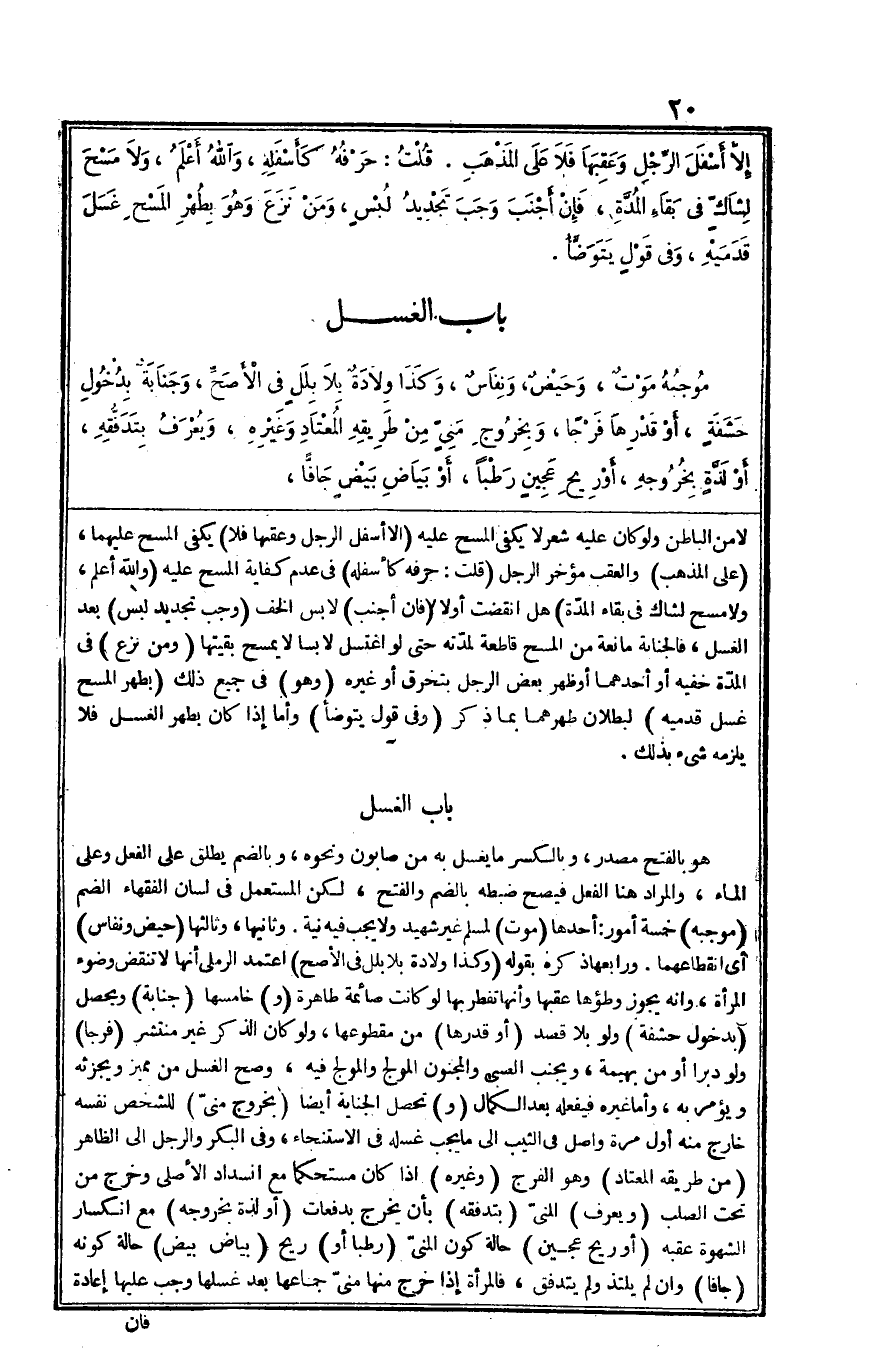 ٢٠
إِلاَّ أَسْفَلَ الرِّجْلِ وَعَقِبَهَا فَلاَ عَلَى الْمَذْهَبِ . قُلْتُ : حَرْفُهُ كَأَسْفَلِهِ ، وَاللهُ أَعْلَمُ ، وَلاَ مَسْحَ
لِشَاكٍّ فى بَقَاءِ الْمُدَّةِ ، فَإِنْ أَجْنَبَ وَجَبَ تَجْدِيدُ لُبْسٍ ، وَمَنْ نَزَعَ وَهُوَ بِطُهْرِ الْمَسْحِ غَسَلَ
قَدَمَيْهِ ، وَفى قَوْلٍ يَتَوَضَّأُ .
باب الغسل
مُوجِبُهُ مَوْتٌ ، وَحَيْضٌ ، وَنِفَاسٌ ، وَكَذَا وِلاَدَةٌ بِلاَ بِلَلٍ فى الْأَصَحِّ ، وَجَنَابَةٌ بِدُخُولِ
حَشَفَةٍ ، أَوْ قَدْرِهَا فَرْجًا ، وَبِخُرُوجِ مَنِيٍّ مِنْ طَرِيقِهِ الْمُعْتَادِ وَغَيْرِهِ ، وَيُعْرَفُ بِتَدَفُّقِهِ ،
أَوْ لَذَّةٍ بِخُرُوجِهِ ، أَوْ رِيحِ عَجِينٍ رَطْبًا ، أَوْ بَيَاضِ بَيْضٍ جَافًّا ،
لامن الباطن ولو كان عليه شعر لا يكفى المسح عليه (الا أسفل الرجل وعقبها فلا) يكفى المسح عليهما ،
(على المذهب) والعقب مؤخر الرجل (قلت : حرفه كأسفله) فى عدم كفاية المسح عليه (والله أعلم ،
ولا مسح لشاك فى بقاء المدّة) هل انقضت أولا (فان أجنب) لابس الخف (وجب تجديد لبس) بعد
الغسل ، فالجنابة مانعة من المسح قاطعة لمدّته حتى لو اغتسل لابسا لا يمسح بقيتها (ومن نزع) فى
المدّة خفيه أو أحدهما أو ظهر بعض الرجل بتخرق أو غيره (وهو) فى جميع ذلك (بطهر المسح
غسل قدميه) لبطلان طهرهما بما ذكر (وفى قول يتوضأ) وأما إذا كان بطهر الغسل فلا
يلزمه شىء بذلك .
باب الغسل
هو بالفتح مصدر ، وبالكسر ما يغسل به من صابون ونحوه ، وبالضم يطلق على الفعل وعلى
الماء ، والمراد هنا الفعل فيصح ضبطه بالضم والفتح ، لكن المستعمل فى لسان الفقهاء الضم
(موجبه) خمسة أمور : أحدها (موت) لمسلم غير شهيد ولا يجب فيه نية . وثانيها ، وثالثها (حيض ونفاس)
أى انقطاعهما . ورابعها ذكره بقوله (وكذا ولادة بلا بلل فى الأصح) اعتمد الرملى أنها لا تنقض وضوء
المرأة ، وانه يجوز وطؤها عقبها وأنها تفطر بها لو كانت صائمة طاهرة (و) خامسها (جنابة) ويحصل
(بدخول حشفة) ولو بلا قصد (أو قدرها) من مقطوعها ، ولو كان الذكر غير منتشر (فرجا)
ولو دبرا أو من بهيمة ، ويجنب الصبى والمجنون المولج والمولج فيه ، وصح الغسل من مميز ويجزئه
ويؤمر به ، وأما غيره فيفعله بعد الكمال (و) تحصل الجنابة أيضا (بخروج منىّ) للشخص نفسه
خارج منه أول مرة واصل فى الثيب الى ما يجب غسله فى الاستنجاء ، وفى البكر والرجل الى الظاهر
(من طريقه المعتاد) وهو الفرج (وغيره) اذا كان مستحكما مع انسداد الأصلى وخرج من
تحت الصلب (ويعرف) المنىّ (بتدفقه) بأن يخرج بدفعات (أو لذة بخروجه) مع انكسار
الشهوة عقبه (أو ريح عجين) حالة كون المنىّ (رطبا أو) ريح (بياض بيض) حالة كونه
(جافا) وان لم يلتذ ولم يتدفق ، فالمرأة إذا خرج منها منىّ جماعها بعد غسلها وجب عليها إعادة
فان